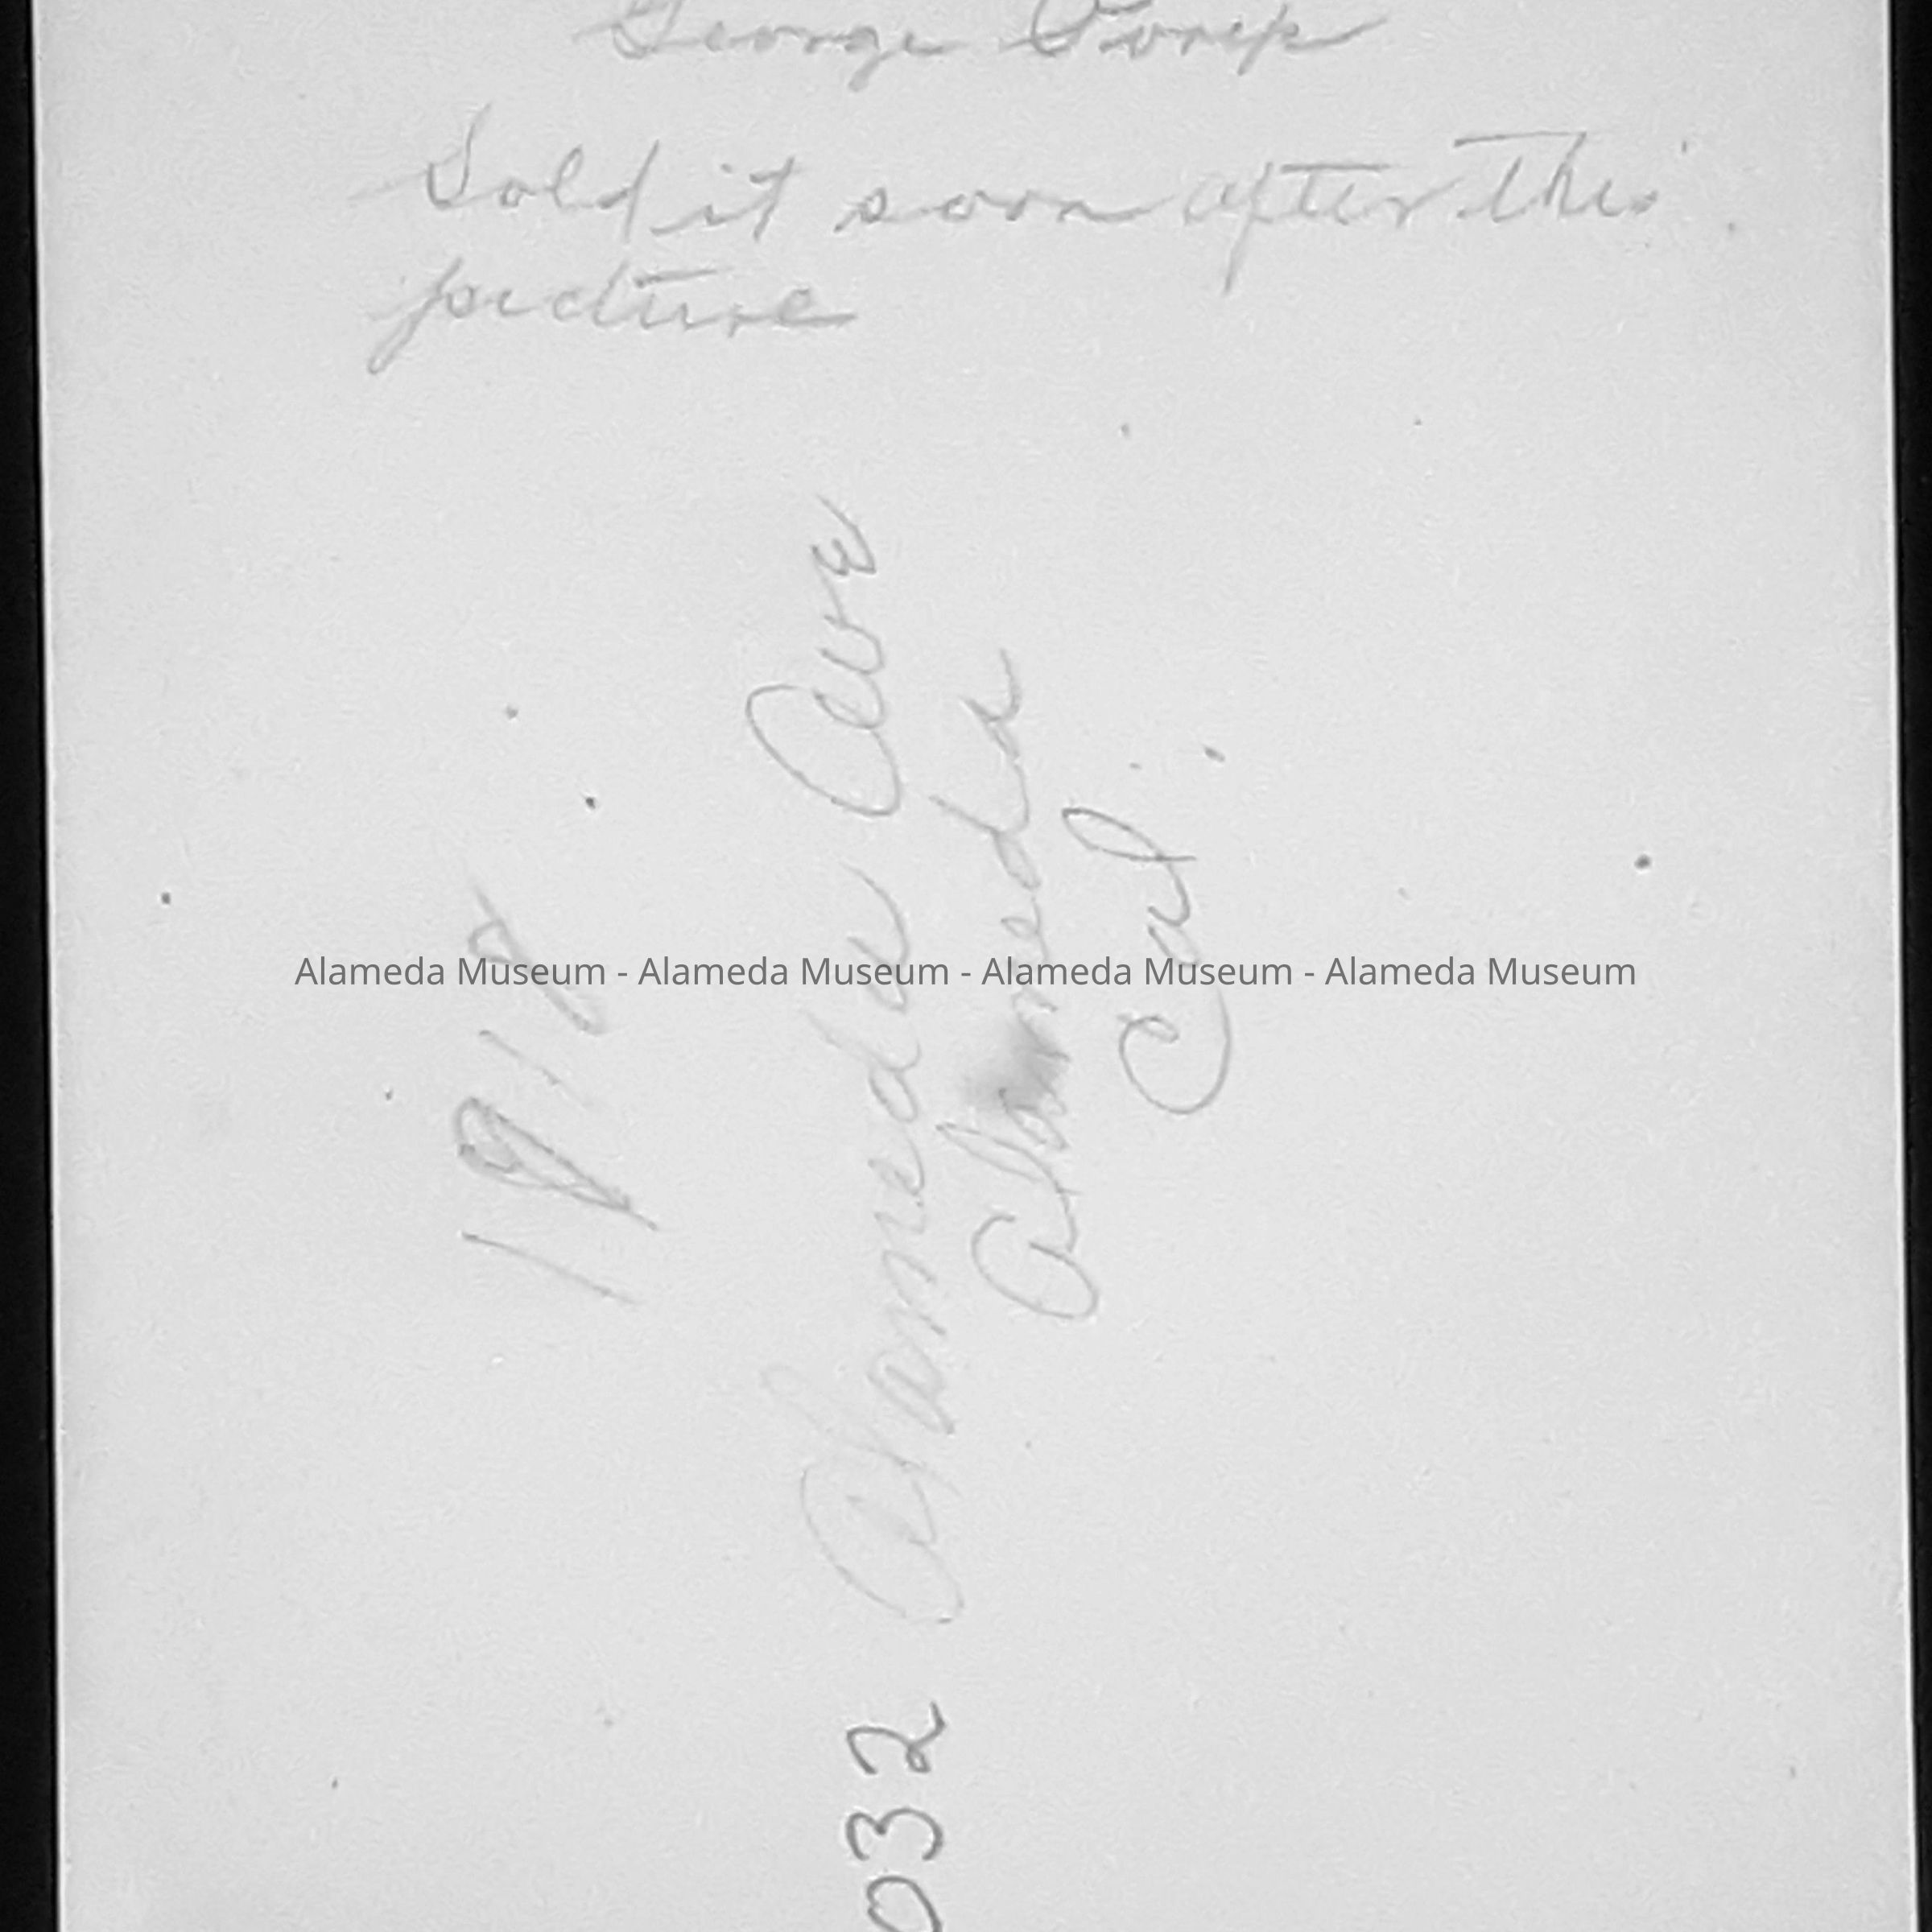 George
Sold it soon after this
picture
Alameda Ave
Alameda
Cal.
032
Alameda Museum - Alameda Museum - Alameda Museum - Alameda Museum